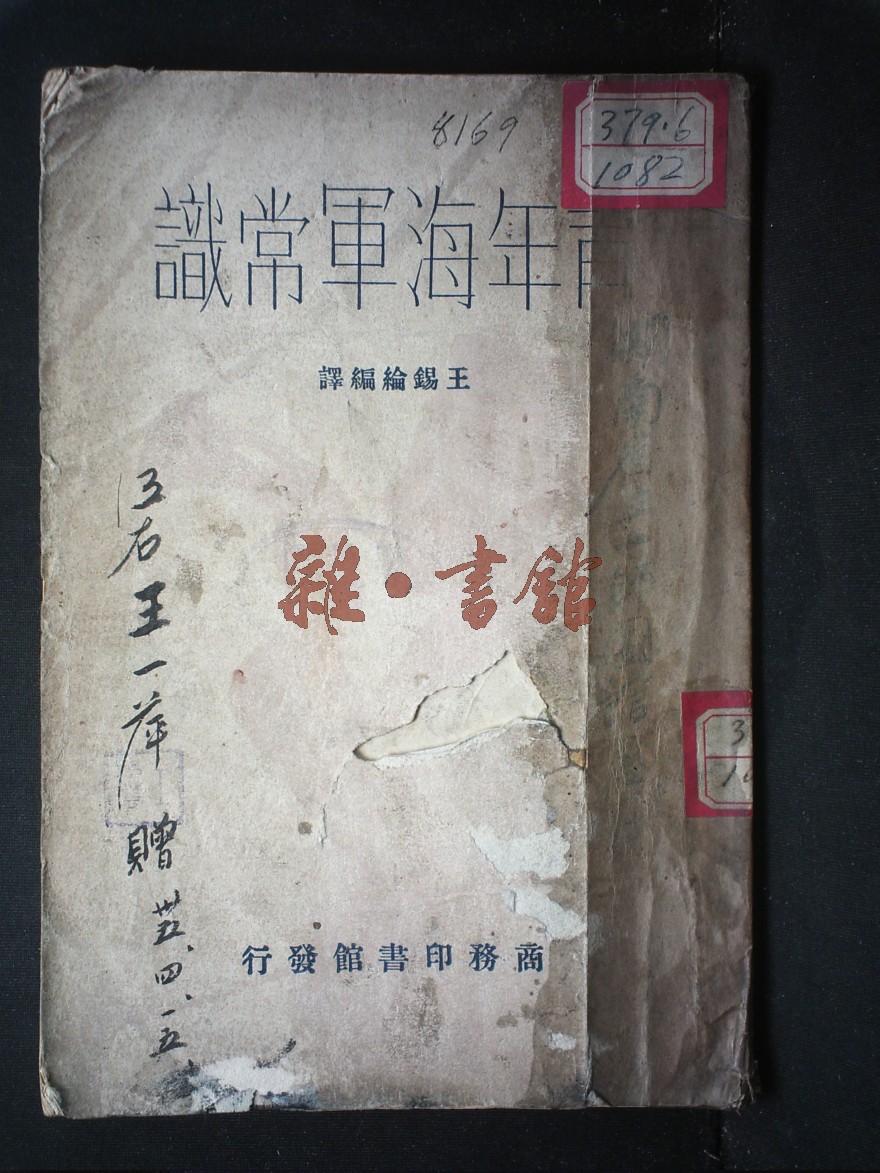 8169
379.6
1082
青年海軍常識
王錫綸編譯
江右王一萍贈 卅五、四、一五
雜·書館
商務印書館發行
3
10